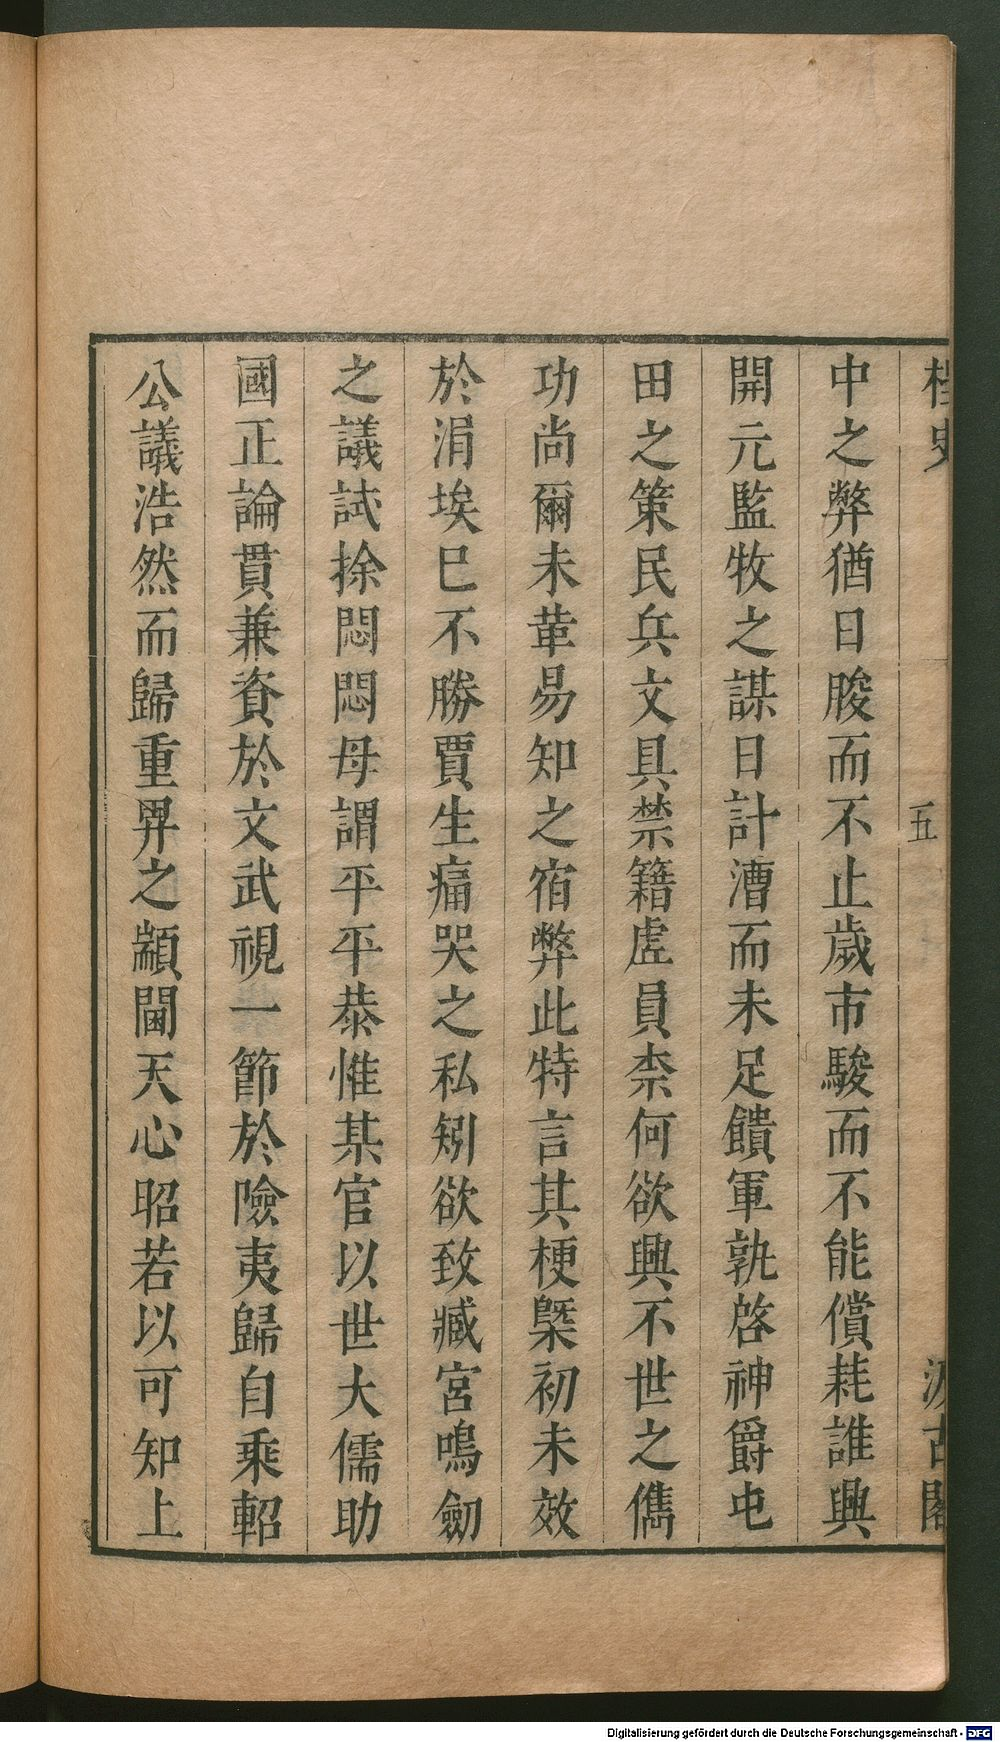 桯史
五
汲古閣
中之弊猶日朘而不止歲市駿而不能償耗誰興
開元監牧之謀日計漕而未足饋軍孰啓神爵屯
田之策民兵文具禁籍虗員柰何欲興不世之儁
功尚爾未革易知之宿弊此特言其梗槩初未效
於涓埃巳不勝賈生痛哭之私矧欲致臧宮鳴劒
之議試捈悶悶母謂平平恭惟某官以世大儒助
國正論貫兼資於文武視一節於險夷歸自乘軺
公議浩然而歸重畀之顓閫天心昭若以可知上
Digitalisierung gefördert durch die Deutsche Forschungsgemeinschaft - DFG